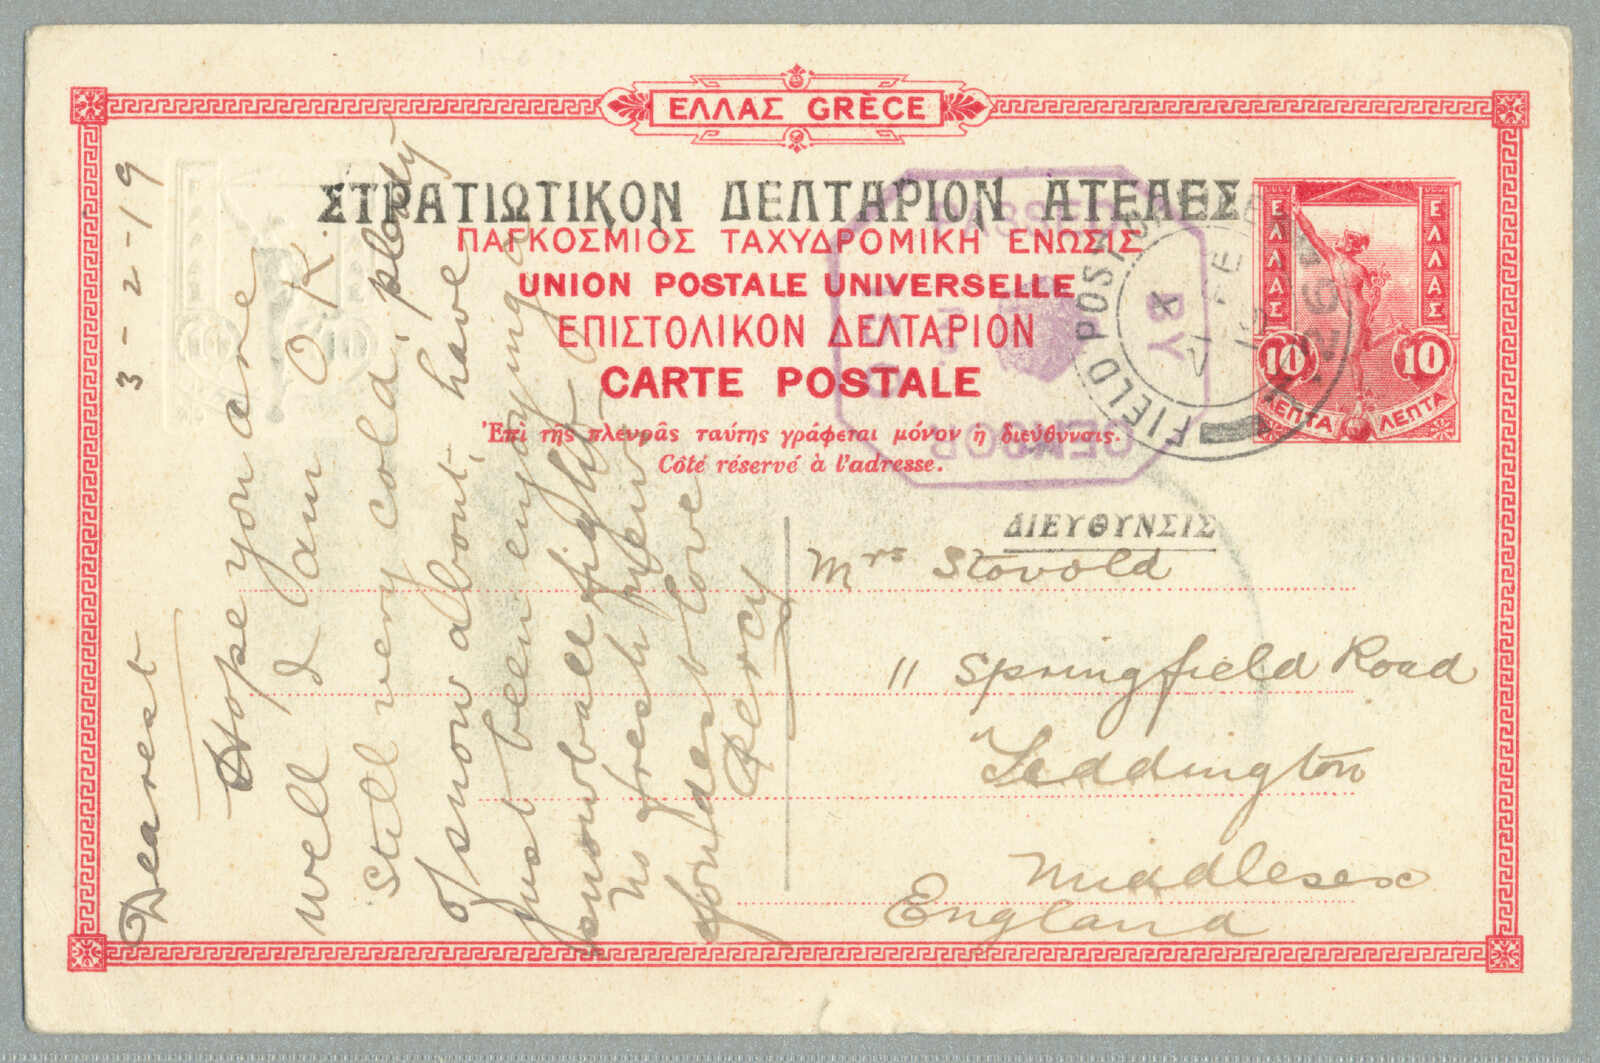 ΕΛΛΑΣ GRÈCE
ΣΤΡΑΤΙΩΤΙΚΟΝ ΔΕΛΤΑΡΙΟΝ ΑΤΕΛΕΣ
ΠΑΓΚΟΣΜΙΟΣ ΤΑΧΥΔΡΟΜΙΚΗ ΕΝΩΣΙΣ
UNION POSTALE UNIVERSELLE
ΕΠΙΣΤΟΛΙΚΟΝ ΔΕΛΤΑΡΙΟΝ
CARTE POSTALE
Ἐπὶ τῆς πλευρᾶς ταύτης γράφεται μόνον ἡ διεύθυνσις.
Côté réservé à l'adresse.
ΕΛΛΑΣ
ΕΛΛΑΣ
10 10
ΛΕΠΤΑ ΛΕΠΤΑ
FIELD POST OFFICE
PASSED
BY
CENSOR
ΔΙΕΥΘΥΝΣΙΣ
Mrs Stovold
11 Springfield Road
Teddington
Middlesex
England
3-2-19
Dearest
Hope you are
well I am O.K.
Still very cold, plenty
of snow about, have
just been enjoying a
snowball fight
No fresh news
fondest love
Percy